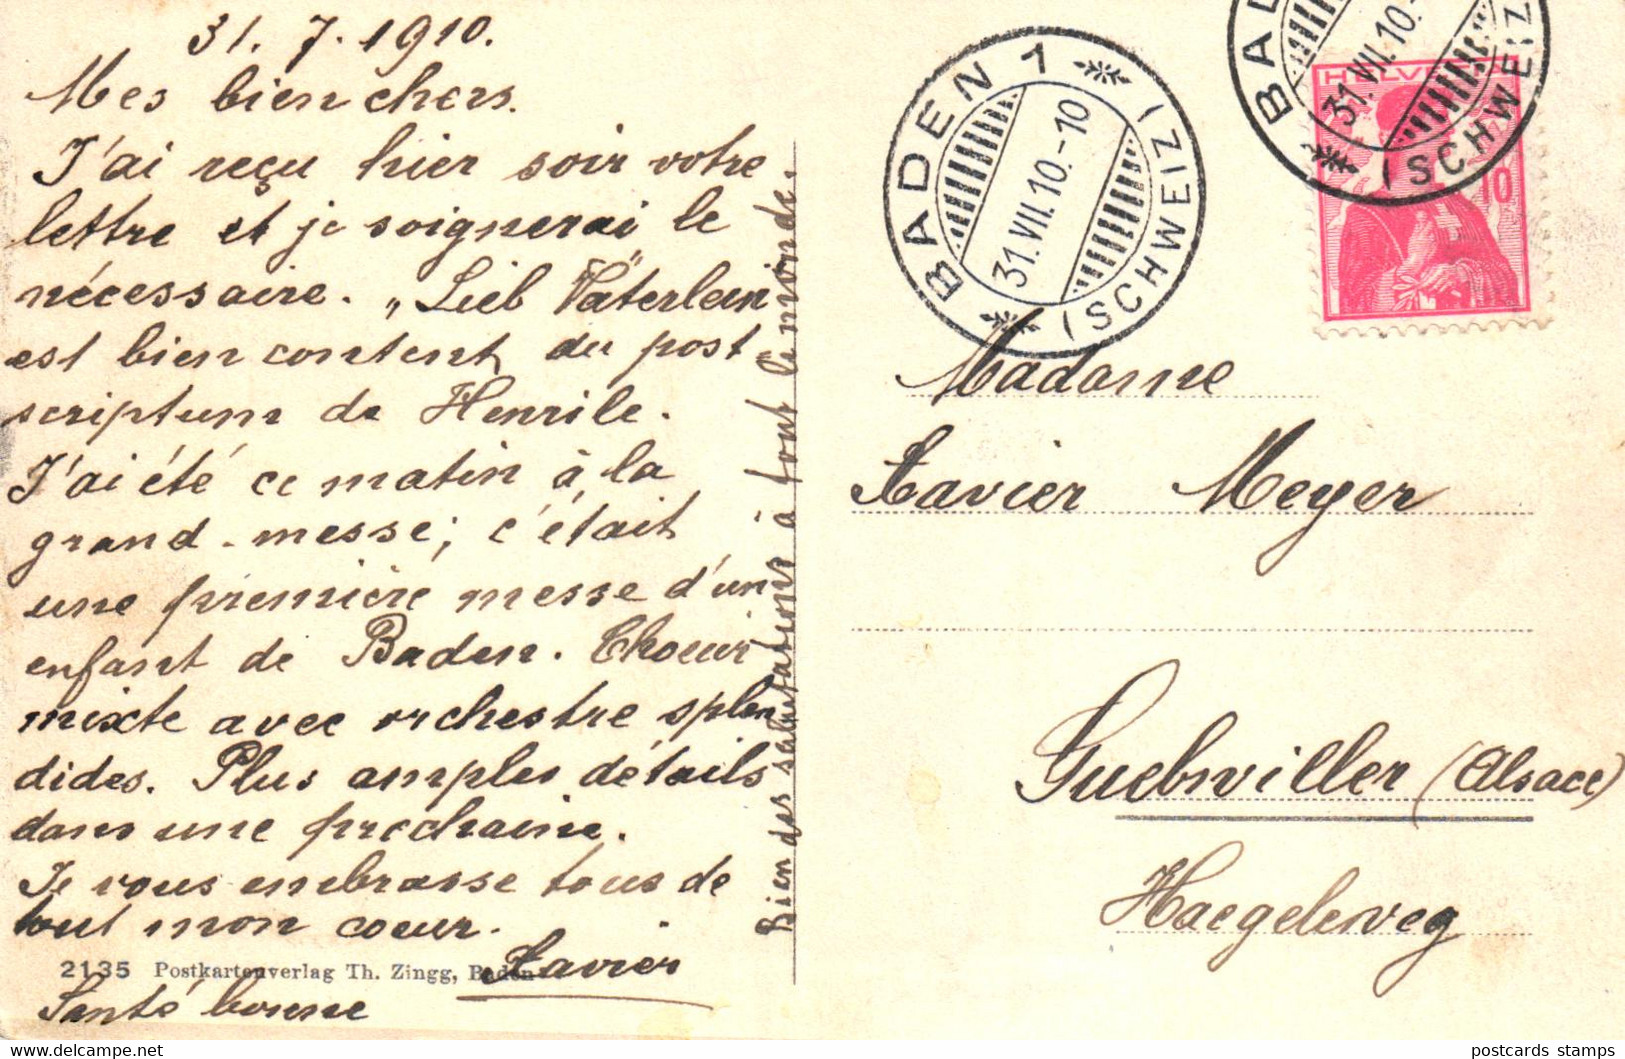 31. 7. 1910.
Mes bien chers.
J'ai reçu hier soir votre
lettre et je soignerai le
nécessaire. „Lieb Väterlein"
est bien content du post
scriptum de Henrile.
J'ai été ce matin à la
grand-messe; c'était
une première messe d'un
enfant de Baden. Choeur
mixte avec orchestre splen
dides. Plus amples détails
dans une prochaine.
Je vous embrasse tous de
tout mon coeur.
Xavier
2135 Postkartenverlag Th. Zingg, Baden
Santé bonne
Bien des salutations à tout le monde.
BADEN 1
31.VII.10.-10
(SCHWEIZ)
BAD
31.VII.10.-
(SCHWEIZ
HELVE
10
Madame
Xavier Meyer
Guebwiller (Alsace)
Haegeleweg
delcampe.net
postcards stamps